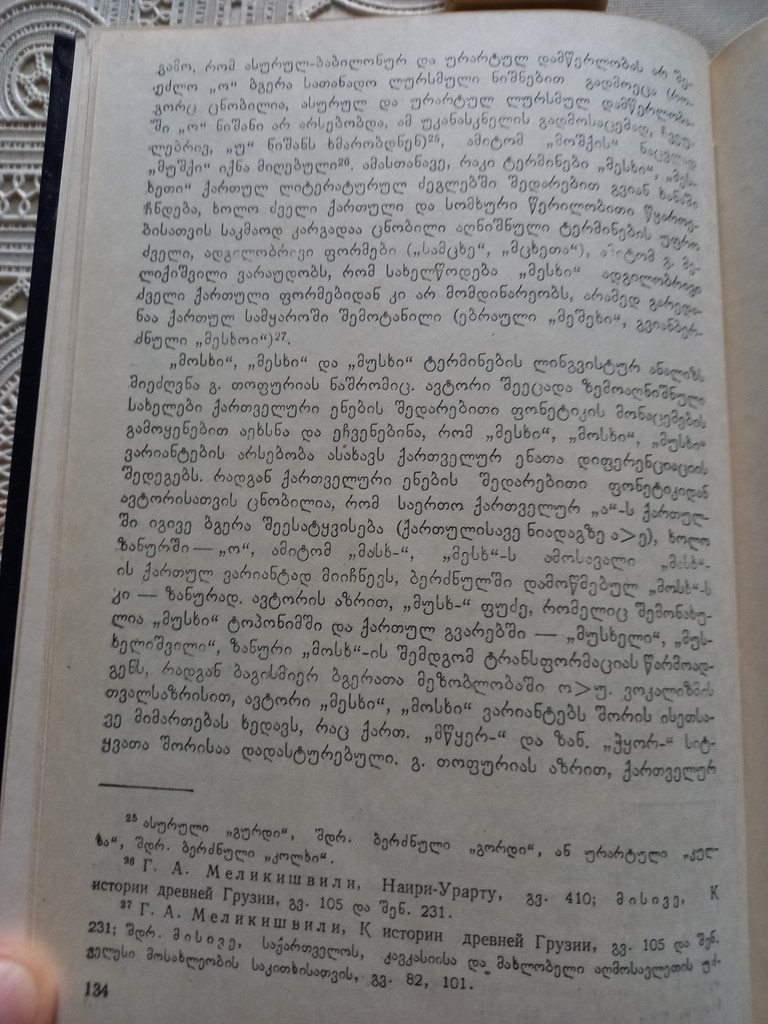 გამო, რომ ასურულ-ბაბილონურ და ურარტულ დამწერლობას არ შე-
ეძლო „ო“ ბგერა სათანადო ლურსმული ნიშნებით გადმოეცა (რო-
გორც ცნობილია, ასურულ და ურარტულ ლურსმულ დამწერლობა-
ში „ო“ ნიშანი არ არსებობდა, ამ უკანასკნელის გადმოსაცემად, ჩვეუ-
ლებრივ, „უ“ ნიშანს ხმარობდნენ)²⁵, ამიტომ „მოშქის“ ნაცვლად
„მუშქი“ იქნა მიღებული²⁶. ამასთანავე, რაკი ტერმინები „მესხი“, „მეს-
ხეთი“ ქართულ ლიტერატურულ ძეგლებში შედარებით გვიან ხანაში
ჩნდება, ხოლო ძველი ქართული და სომხური წერილობითი წყაროე-
ბისათვის საკმაოდ კარგადაა ცნობილი აღნიშნული ტერმინების უფრო
ძველი, ადგილობრივი ფორმები („სამცხე“, „მცხეთა“), ამიტომ გ. მე-
ლიქიშვილი ვარაუდობს, რომ სახელწოდება „მესხი“ ადგილობრივი
ძველი ქართული ფორმებიდან კი არ მომდინარეობს, არამედ გარედა-
ნაა ქართულ სამყაროში შემოტანილი (ებრაული „მეშეხი“, გვიანბერ-
ძნული „მესხოი“)²⁷.
„მოსხი“, „მესხი“ და „მუსხი“ ტერმინების ლინგვისტურ ანალიზს
მიეძღვნა გ. თოფურიას ნაშრომიც. ავტორი შეეცადა ზემოაღნიშნული
სახელები ქართველური ენების შედარებითი ფონეტიკის მონაცემების
გამოყენებით აეხსნა და ეჩვენებინა, რომ „მესხი“, „მოსხი“, „მუსხი“
ვარიანტების არსებობა ასახავს ქართველურ ენათა დიფერენციაციის
შედეგებს. რადგან ქართველური ენების შედარებითი ფონეტიკიდან
ავტორისათვის ცნობილია, რომ საერთო ქართველურ „ა“-ს ქართულ-
ში იგივე ბგერა შეესატყვისება (ქართულისავე ნიადაგზე ა>ე), ხოლო
ზანურში — „ო“, ამიტომ „მასხ-“, „მესხ“-ს ამოსავალი „მასხ“-
ის ქართულ ვარიანტად მიიჩნევს, ბერძნულში დამოწმებულ „მოსხ“-ს
კი — ზანურად. ავტორის აზრით, „მუსხ-“ ფუძე, რომელიც შემონახუ-
ლია „მუსხი“ ტოპონიმში და ქართულ გვარებში — „მუსხელი“, „მუს-
ხელიშვილი“, ზანური „მოსხ“-ის შემდგომ ტრანსფორმაციას წარმოად-
გენს, რადგან ბაგისმიერ ბგერათა მეზობლობაში ო>უ. ვოკალიზმის
თვალსაზრისით, ავტორი „მესხი“, „მოსხი“ ვარიანტებს შორის ისეთსა-
ვე მიმართებას ხედავს, რაც ქართ. „მწყერ-“ და ზან. „ჭყორ-“ სიტ-
ყვათა შორისაა დადასტურებული. გ. თოფურიას აზრით, ქართველურ
²⁵ ასურული „გურდი“, შდრ. ბერძნული „გორდი“, ან ურარტული „კულ-
ხა“, შდრ. ბერძნული „კოლხი“.
²⁶ Г. А. Меликишвили, Наири-Урарту, გვ. 410; მისივე, К
истории древней Грузии, გვ. 105 და შენ. 231.
²⁷ Г. А. Меликишвили, К истории древней Грузии, გვ. 105 და შენ.
231; შდრ. მისივე, საქართველოს, კავკასიისა და მახლობელი აღმოსავლეთის უძ-
ველესი მოსახლეობის საკითხისათვის, გვ. 82, 101.
134